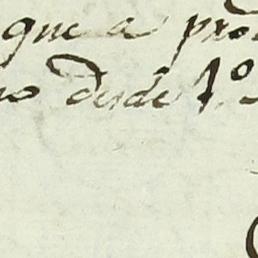 que a pro
no desde 1.º